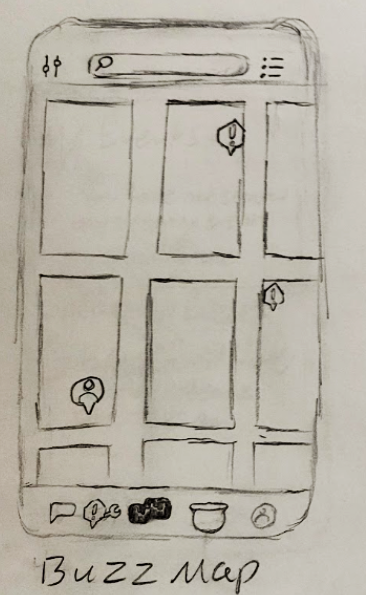 Buzz Map